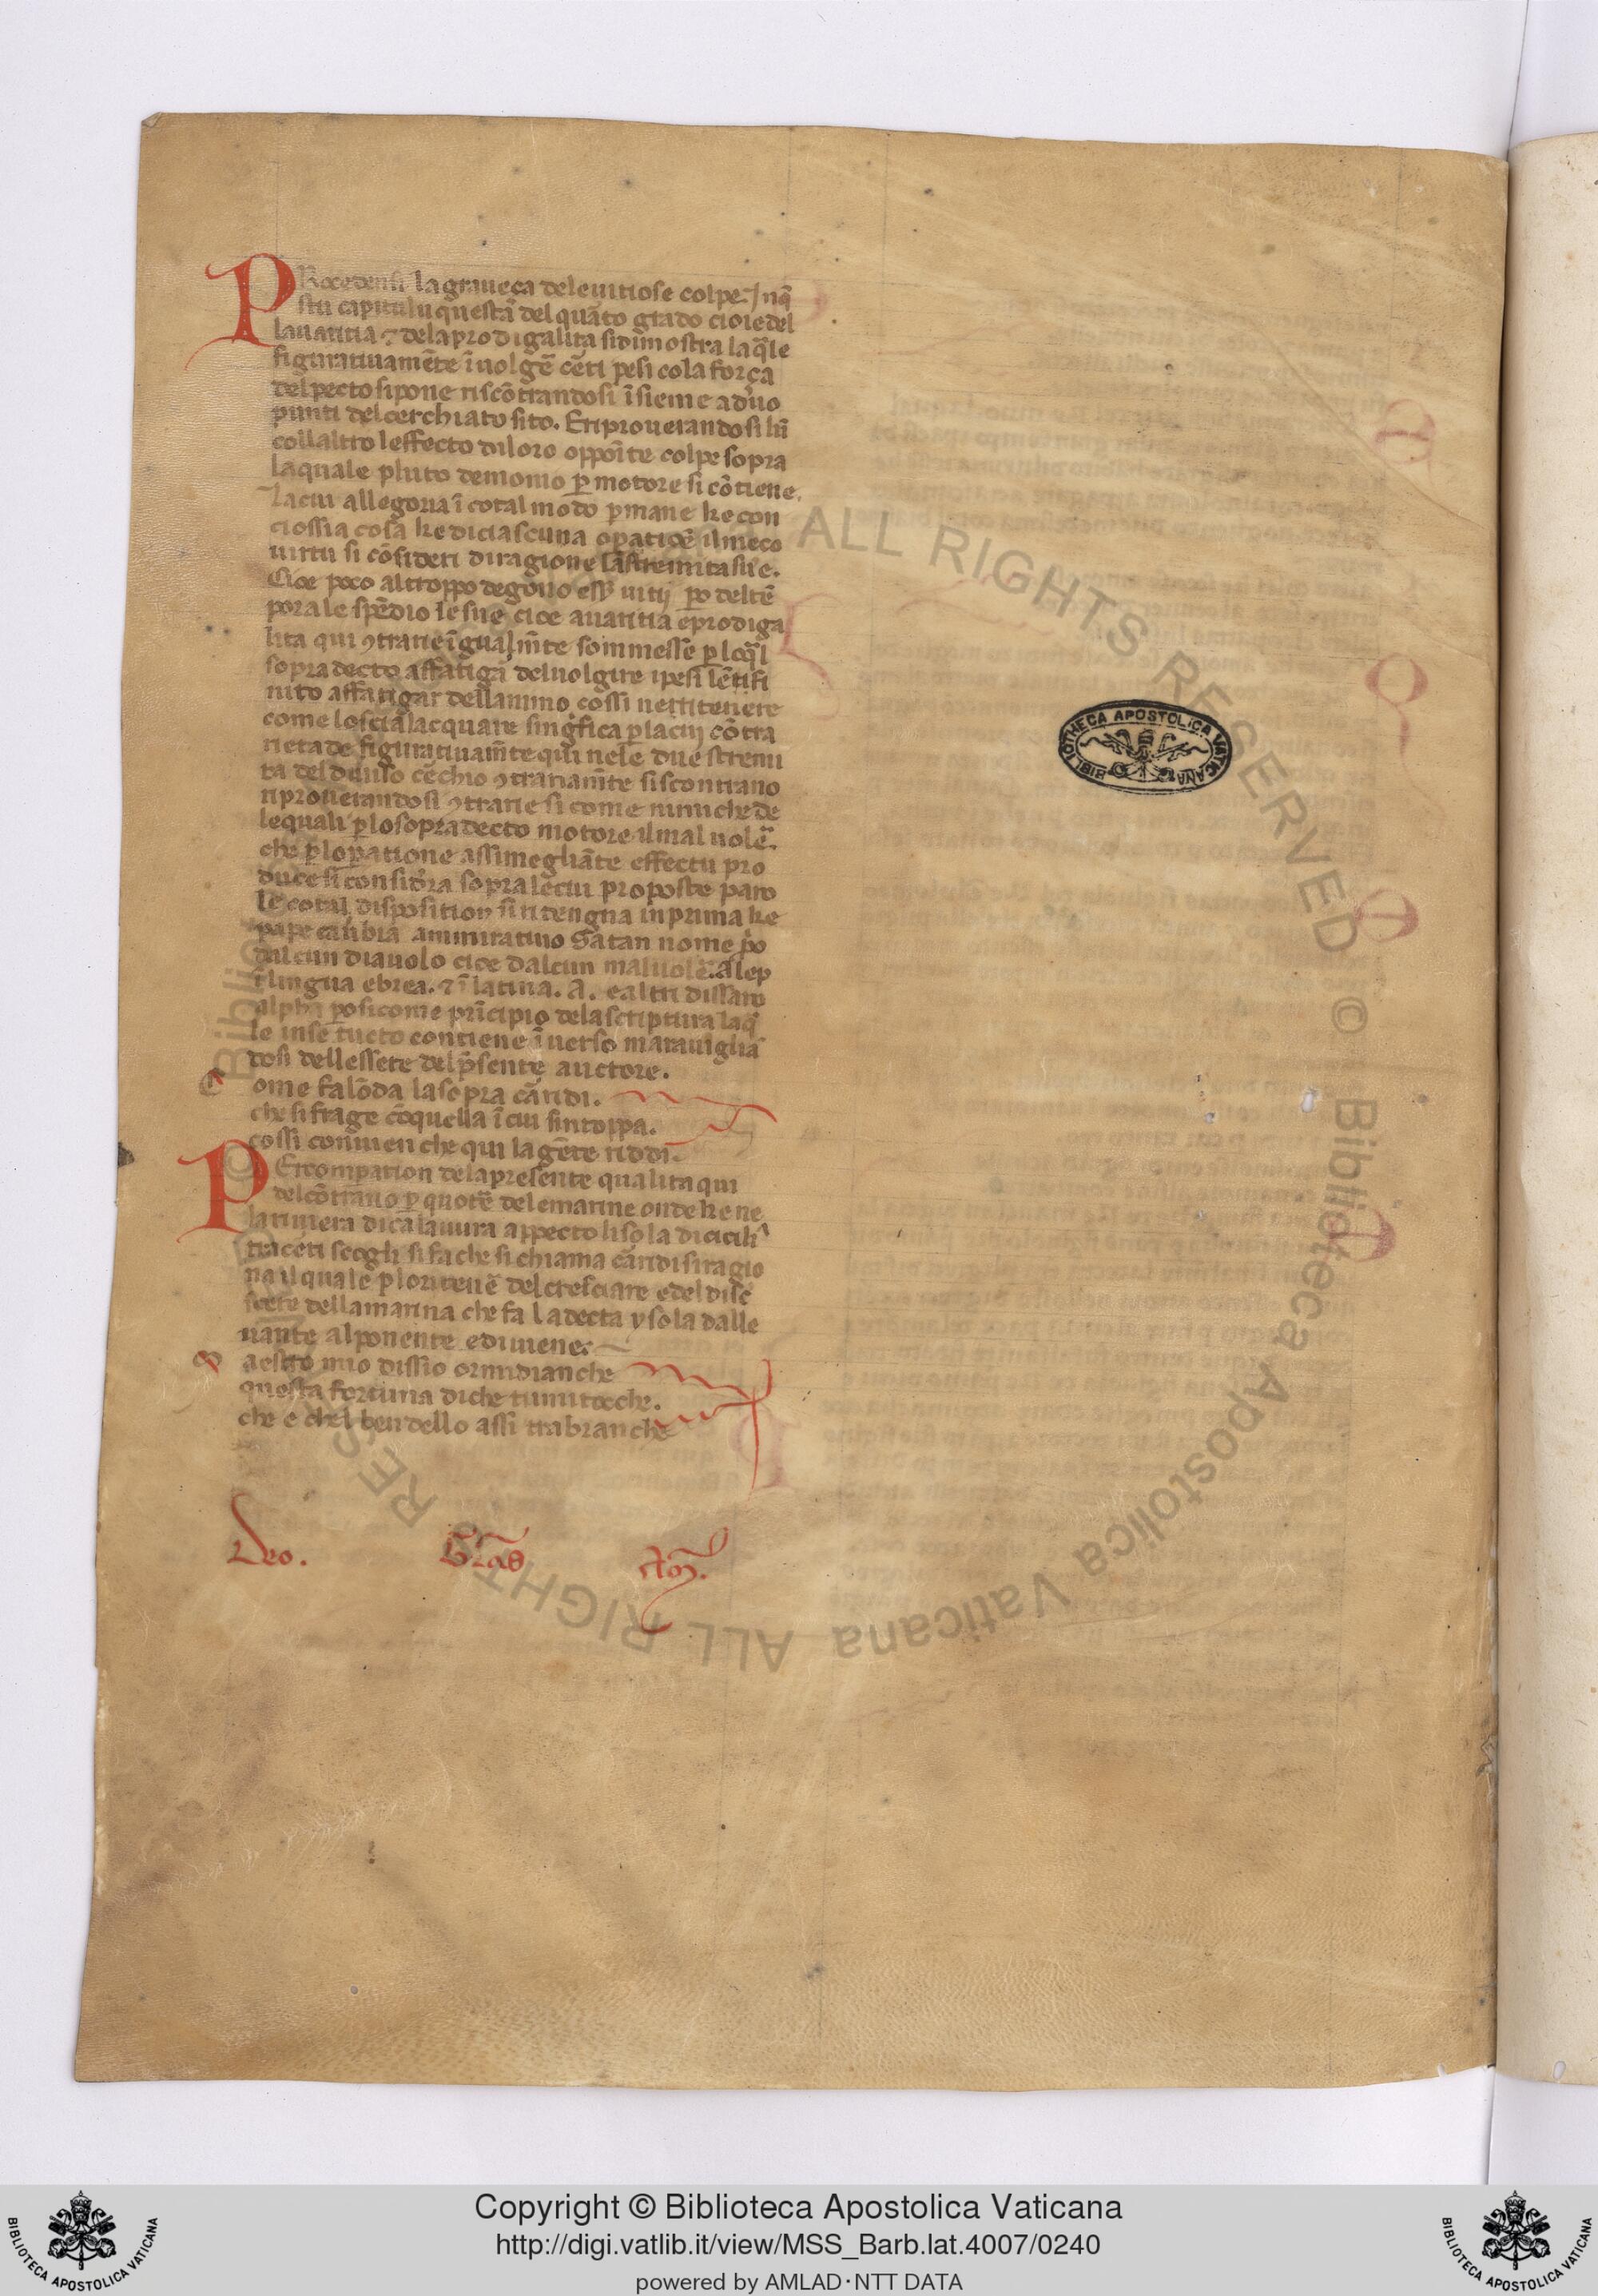 PRocedensi la graueça dele uitiose colpe. Jn q̃
sto capitulu questa del quãto grado cioie del
lauaritia ⁊ dela prodigalita si dimostra la q̃le
figuratiuamẽte ĩ uolgẽ cẽti pesi cola força
del pecto si pone riscõtrandosi ĩsieme aduo
punti del cerchiato sito. Et riprouerandosi lũ
collaltro leffecto di loro oppoĩte colpe sopra
la quale pluto demonio ꝑ motore si cõtiene.
La cui allegoria ĩ cotal modo ꝑmane ke con
ciossia cosa ke di ciascuna oꝑatiõe il meço
uirtu si cõsideri di ragione lastremita sue.
Cioe poco al troppo degono ess̃ uitij ꝑo del tẽ
porale spẽdio le sue cioe auaritia e prodiga
lita qui ꝯtrarie ĩgualm̃te sommesse ꝑ lo q̃l
sopradecto affatigã del uolgire i pesi lẽtifi
nito affatigar dellanimo cossi nel ritenere
come lo sciãlacquare singifica ꝑ la cui cõtra
rietade figuratiuam̃te qui nele due stremi
ta del diuiso cẽchio ꝯtrariam̃te si scontrano
riprouerandosi ꝯtrarie si come nimiche de
le quali ꝑ lo sopradecto motore il mal uolẽ.
che ꝑ loꝑatione assimegliãte effectu pro
duce si considra sopra le cui proposte paro
le cotal disposition si ritengna in prima ke
pape ammiratiuo Satan nome ꝓo
dalcun diauolo cioe dalcun maluolẽ. Alep
ĩ lingua ebrea. ⁊ ĩ latina. A. e altri dissaro
alpha ꝑo si come prĩcipio dela scriptura la q̃
le in se tucto contiene ĩ uerso marauigliã
dosi dellessere del p̃sente auctore.
Come fa lõda la sopra cãridi.
che si frãge cõ quella ĩ cui sintoppa.
cossi conuien che qui la gẽte riddi.
PEr comparion dela presente qualita qui
del cõtrario ꝑ quoteᷓ dele marine onde ke ne
la riuiera di calauura appecto lisola di cicili ͣ
tra cẽti scogli si fa che si chiama cãridi si ragio
na il quale ꝑ lo ritenẽ del cresciare e del disc̃
scere della marina che fa la decta ysola dalle
uante al ponente ediuiene.
Maestro mio dissio or mi di anche
questa fortuna di che tu mi tocche.
che e chel ben dello assi tra branche
Deo. Gr̃as Am̃.
BIBLIOTHECA APOSTOLICA VATICANA
© Biblioteca Apostolica Vaticana ALL RIGHTS RESERVED
Copyright © Biblioteca Apostolica Vaticana
http://digi.vatlib.it/view/MSS_Barb.lat.4007/0240
powered by AMLAD·NTT DATA
BIBLIOTECA APOSTOLICA VATICANA
BIBLIOTECA APOSTOLICA VATICANA